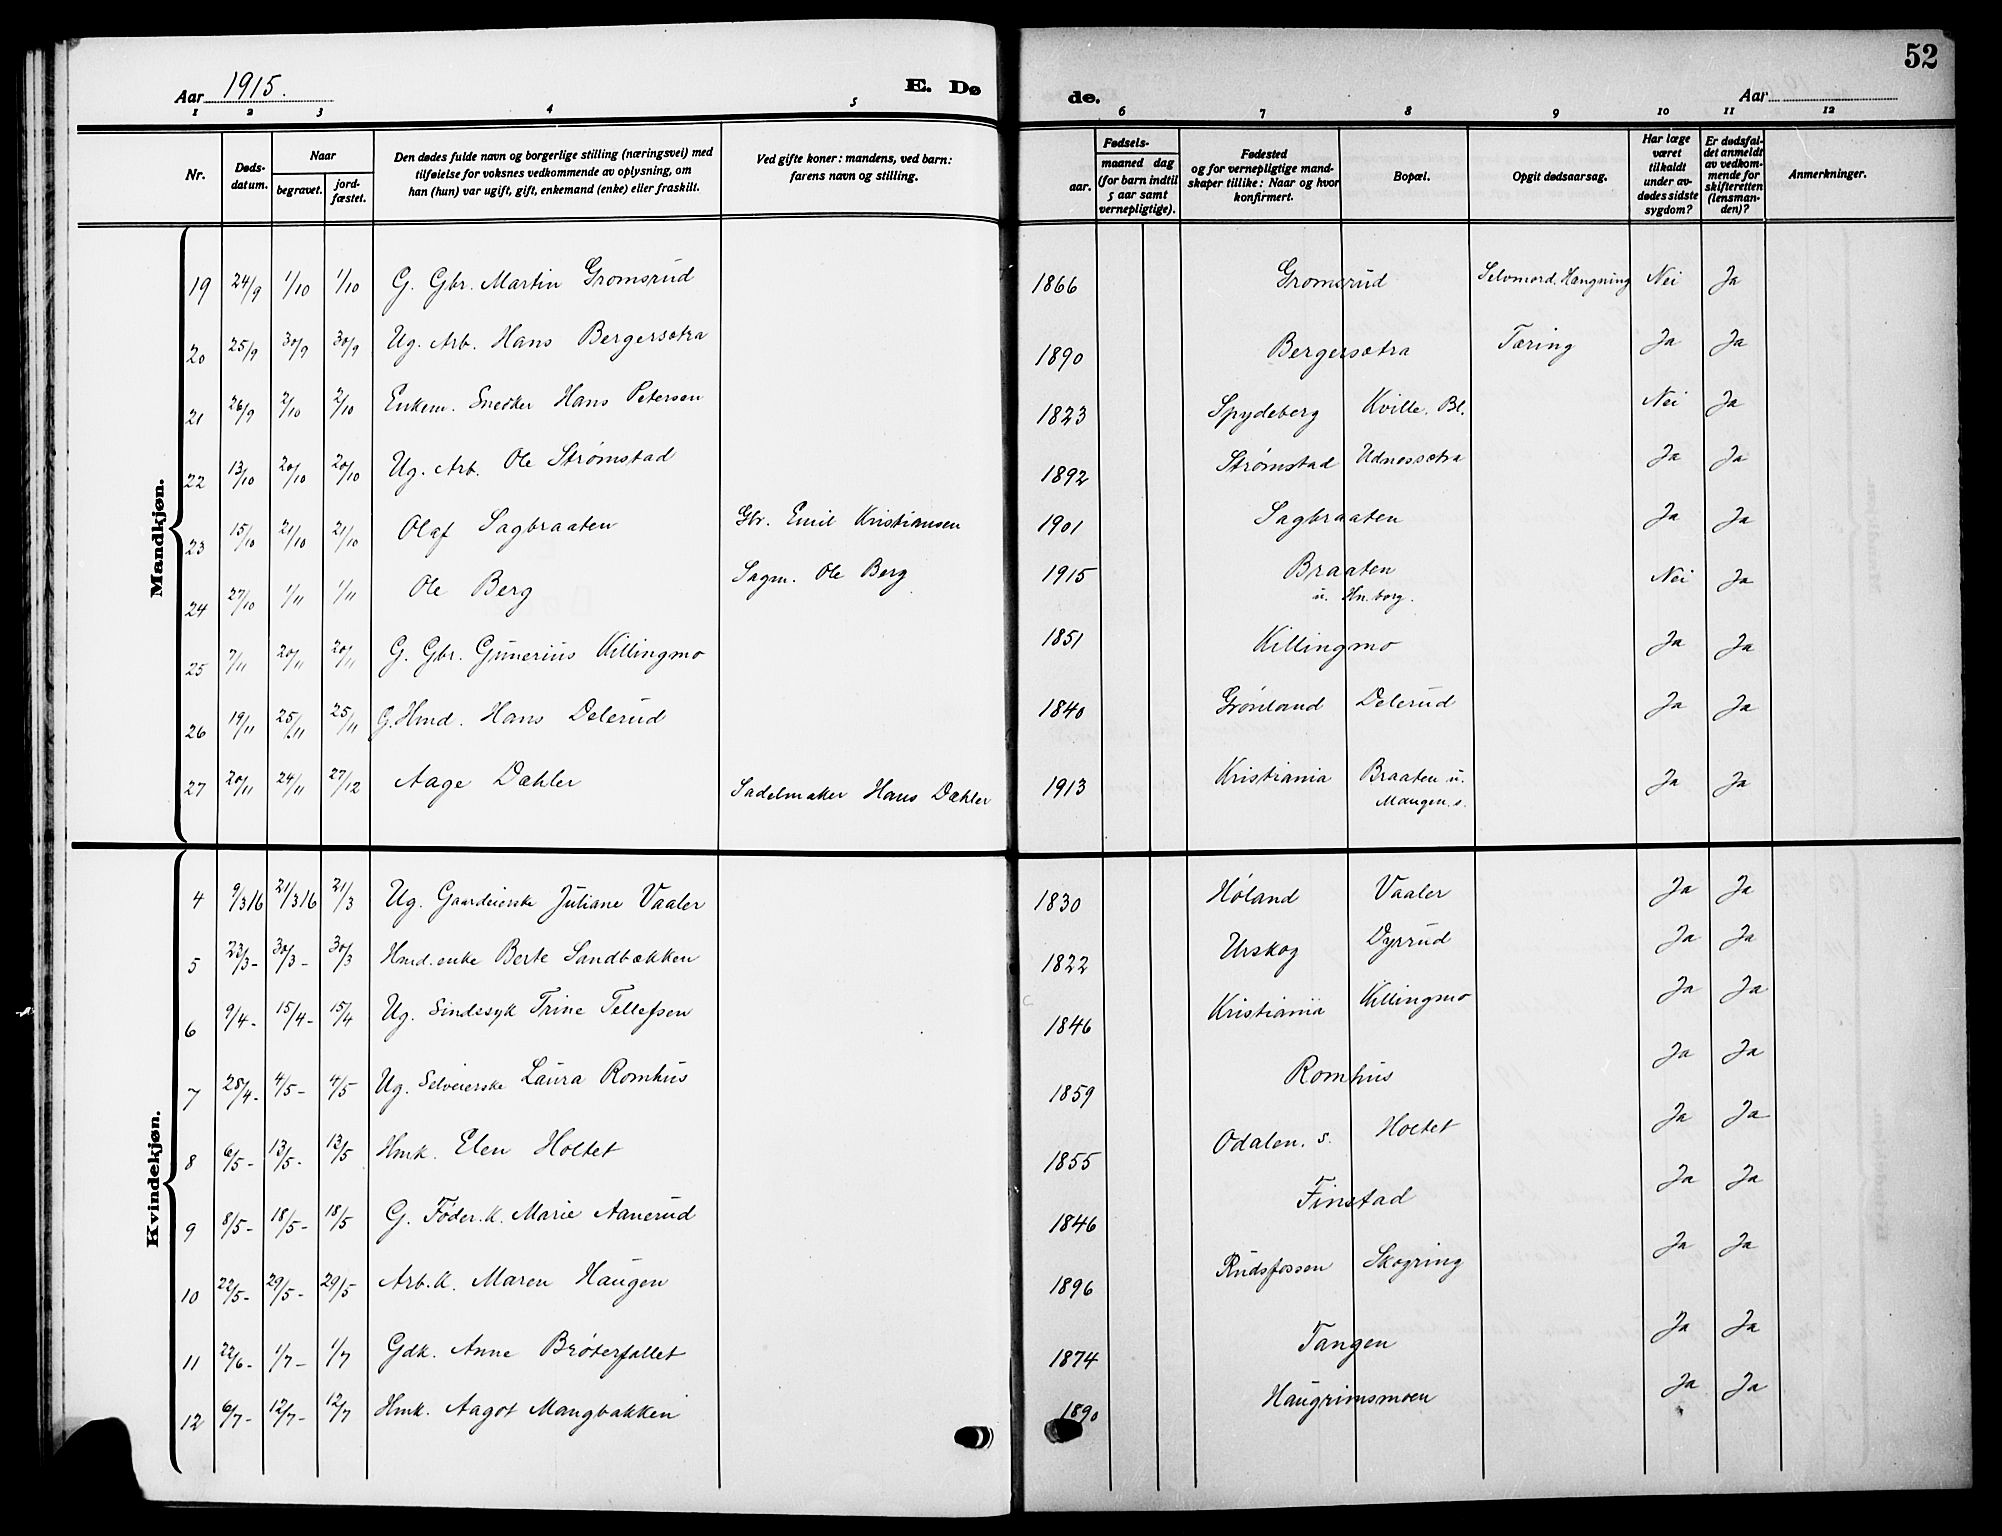 52
Aar 1915.
E. Dø
de.
Aar
1 2 3 4 5 6 7 8 9 10 11 12
Nr. | Døds-datum. | Naar begravet. | jord-fæstet. | Den dødes fulde navn og borgerlige stilling (næringsvei) med tilføielse for voksnes vedkommende av oplysning, om han (hun) var ugift, gift, enkemand (enke) eller fraskilt. | Ved gifte koner: mandens, ved barn: farens navn og stilling. | Fødsels- aar. | maaned dag (for barn indtil 5 aar samt vernepligtige). | Fødested og for vernepligtige mand-skaper tillike: Naar og hvor konfirmert. | Bopæl. | Opgit dødsaarsag. | Har læge været tilkaldt under av-dødes sidste sygdom? | Er dødsfal-det anmeldt av vedkom-mende for skifteretten (lensman-den)? | Anmerkninger.
Mandkjøn.
19 24/9 1/10 1/10 G. Gbr. Martin Gromsrud 1866 Gromsrud Selvmord. Hængning Nei Ja
20 25/9 30/9 30/9 Ug. Arb. Hans Bergersætra 1890 Bergersætra Tæring Ja Ja
21 26/9 2/10 2/10 Enkem. Snedker Hans Petersen 1823 Spydeberg Kville. Bl. Nei Ja
22 13/10 20/10 20/10 Ug. Arb. Ole Strømstad 1892 Strømstad Udnessætra Ja Ja
23 15/10 21/10 21/10 Olaf Sagbraaten Gbr. Emil Kristiansen 1901 Sagbraaten Ja Ja
24 27/10 1/11 1/11 Ole Berg Sagm. Ole Berg 1915 Braaten Nei Ja
u. Hn. borg.
25 7/11 20/11 20/11 G. Gbr. Gunerius Killingmo 1851 Killingmo Ja Ja
26 19/11 25/11 25/11 G. Hmd. Hans Delerud 1840 Grønland Delerud Ja Ja
27 20/11 24/11 27/12 Aage Dæhler Sadelmaker Hans Dæhler 1913 Kristiania Braaten u. Ja Ja
Mangen. s.
Kvindekjøn.
4 9/3 16 21/3 16 21/3 Ug. Gaardeierske Juliane Vaaler 1830 Høland Vaaler Ja Ja
5 23/3 - 30/3 - 30/3 Hmd. enke Berte Sandbækken 1822 Urskog Dyrrud Ja Ja
6 9/4 - 15/4 - 15/4 Ug. Sindssyk Trine Tellefsen 1846 Kristiania Killingmo Ja Ja
7 28/4 - 4/5 - 4/5 Ug. Selveierske Laura Romhus 1859 Romhus Ja Ja
8 6/5 - 13/5 - 13/5 Hmk. Elen Holtet 1855 Odalen. s. Holtet Ja Ja
9 8/5 - 18/5 - 18/5 G. Føder. k. Marie Aanerud 1846 Finstad Ja Ja
10 22/5 - 29/5 - 29/5 Arb. K. Maren Haugen 1896 Rudsfossen Skogring Ja Ja
11 22/6 - 1/7 - 1/7 Gdk. Anne Brøterfallet 1874 Tangen Ja Ja
12 6/7 - 12/7 - 12/7 Hmk. Aagot Mangbakken 1890 Haugrimsmoen Ja Ja